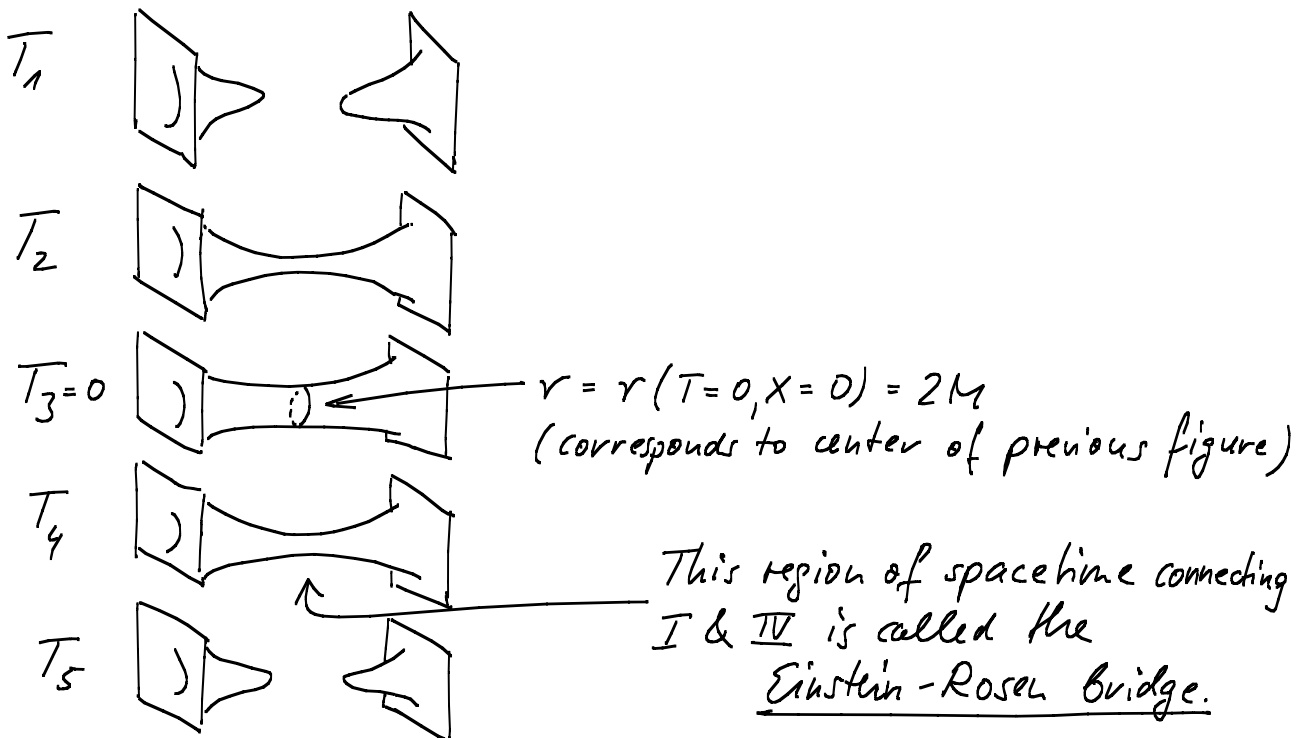 T₁
T₂
T₃=0
r = r(T=0, X=0) = 2M
(corresponds to center of previous figure)
T₄
This region of spacetime connecting
I & IV is called the
Einstein-Rosen Bridge.
T₅